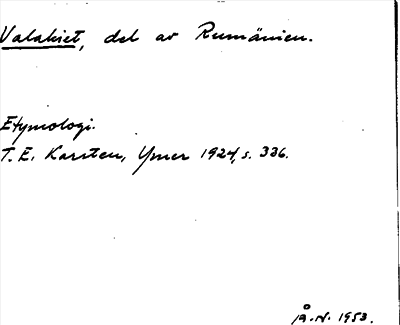 Valakiet, del av Rumänien.
Etymologi.
T. E. Karsten, Ymer 1924, s. 336.
Å. N. 1953.